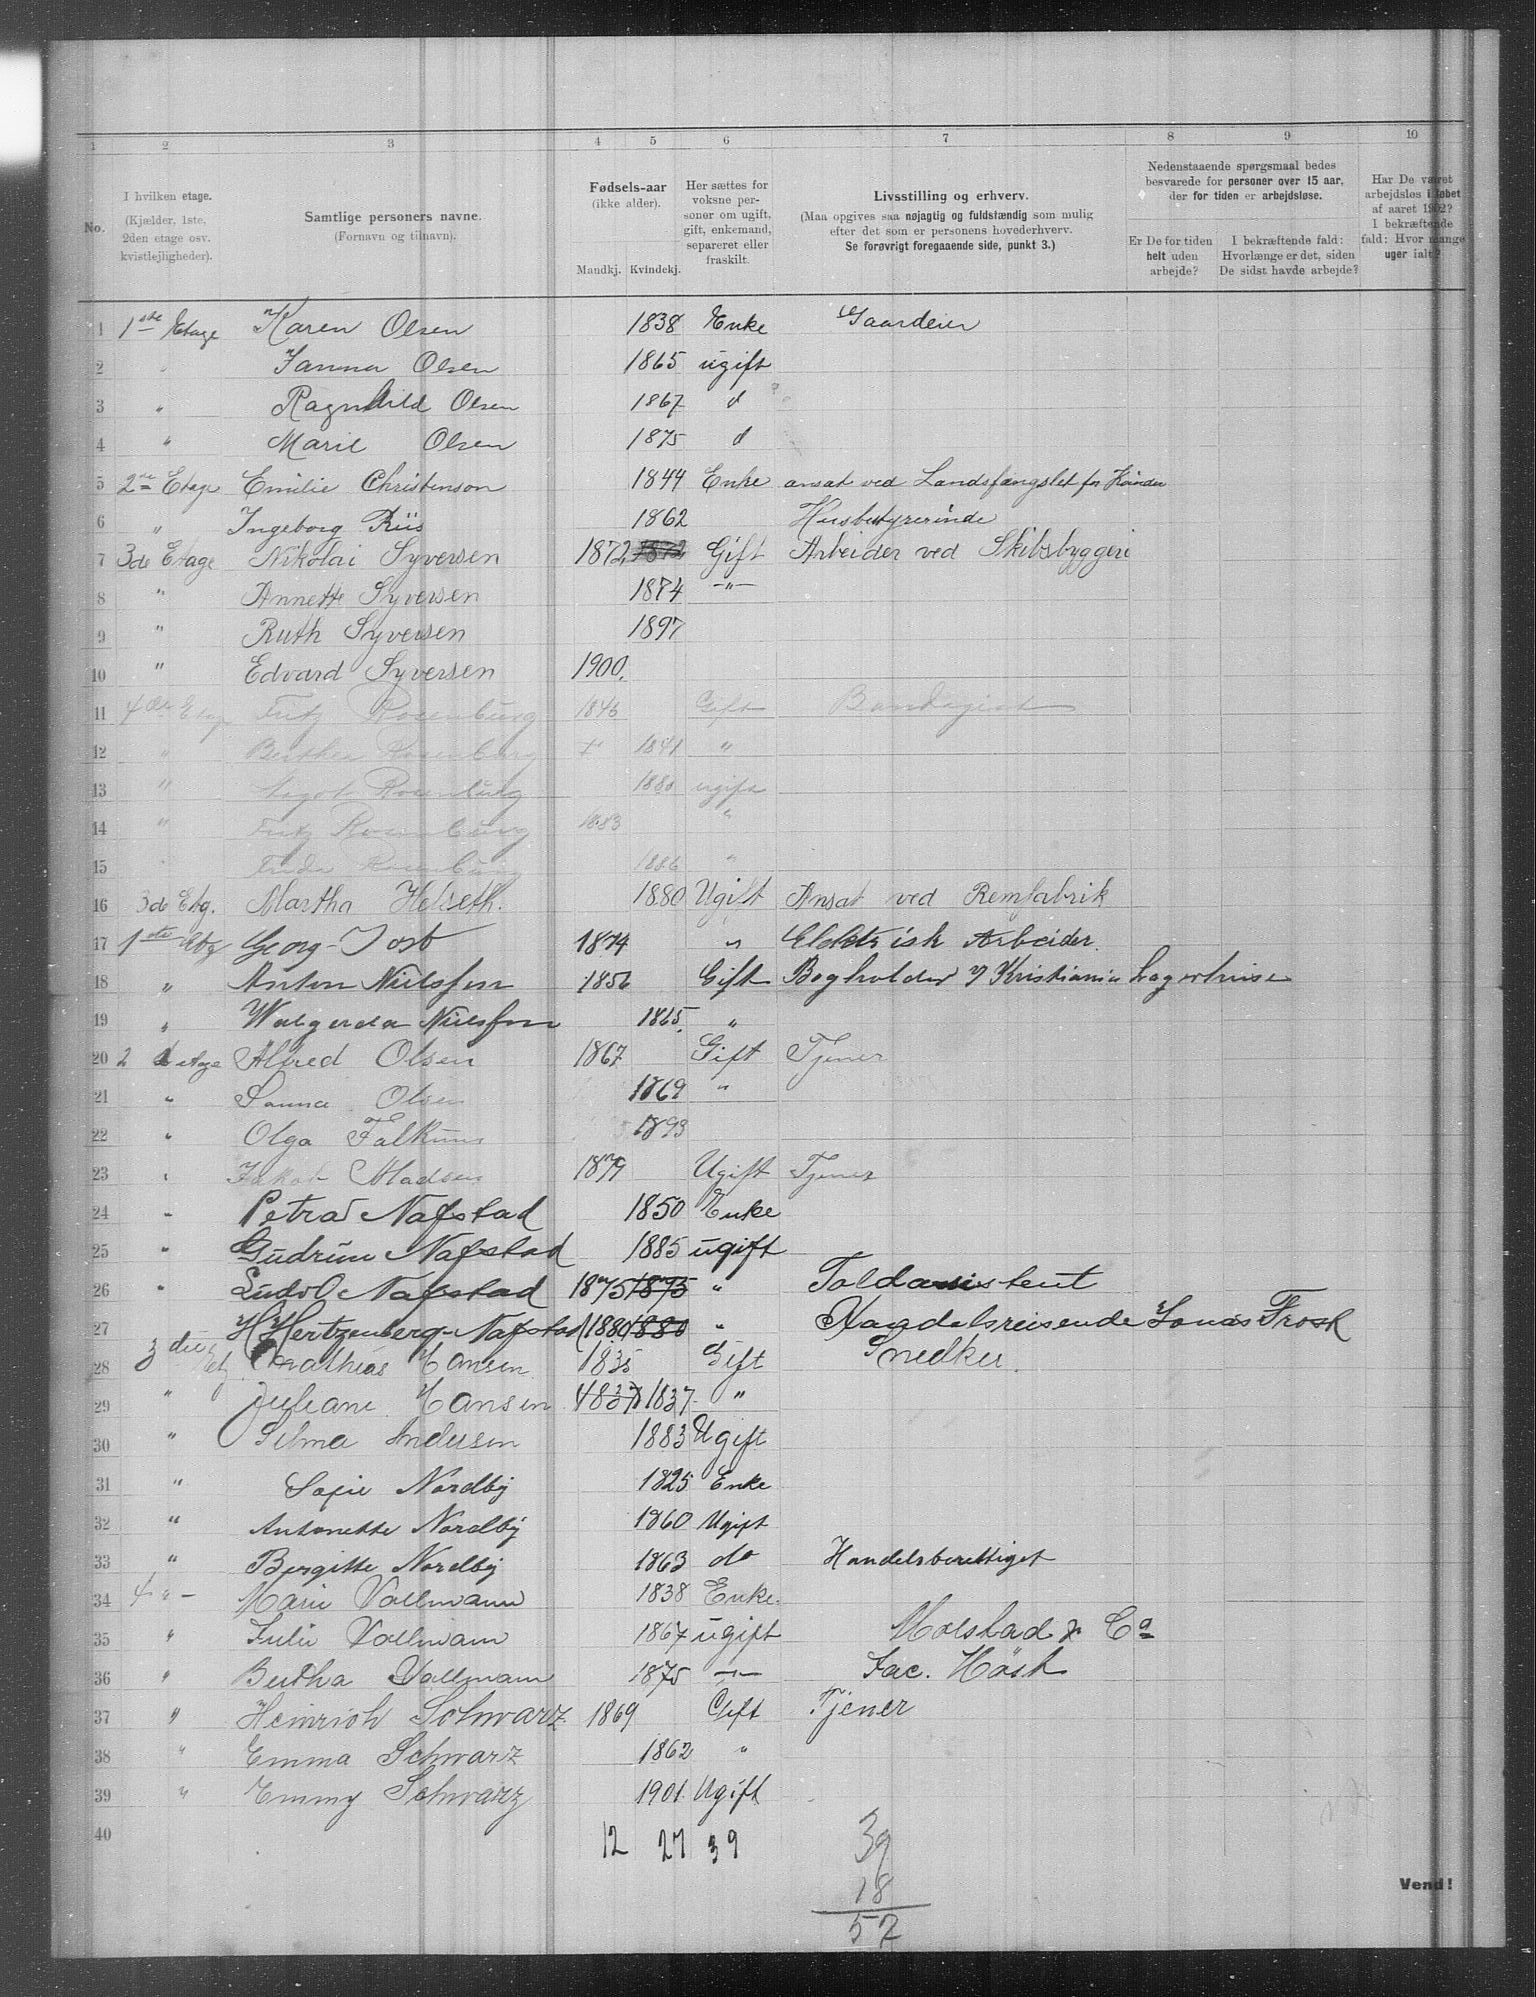 1 2 3 4 5 6 7 8 9 10
No.
I hvilken etage. (Kjælder, 1ste, 2den etage osv. kvistlejligheder).
Samtlige personers navne. (Fornavn og tilnavn).
Fødsels-aar (ikke alder). Mandkj. Kvindekj.
Her sættes for voksne personer om ugift, gift, enkemand, separeret eller fraskilt.
Livsstilling og erhverv. (Maa opgives saa nøjagtig og fuldstændig som mulig efter det som er personens hovederhverv. Se forøvrigt foregaaende side, punkt 3.)
Nedenstaaende spørgsmaal bedes besvarede for personer over 15 aar, der for tiden er arbejdsløse.
Er De for tiden helt uden arbejde?
I bekræftende fald: Hvorlænge er det, siden De sidst havde arbejde?
Har De været arbejdsløs i løbet af aaret 1902? I bekræftende fald: Hvor mange uger ialt?
1 1ste Etage Karen Olsen 1838 Enke Gaardeier
2 " Olsen 1865 ugift
3 " Ragnhild Olsen 1867 d
4 " Marie Olsen 1875 d
5 2ne Etage Emilie Christenson 1844 Enke ansat ved Landsfængslet for Kvinder
6 " Ingeborg Riis 1862 Husbestyrerinde
7 3de Etage Nikolai Syversen 1872 1872 Gift Arbeider ved Skibsbyggeri
8 " Annette Syversen 1874 -"-
9 " Ruth Syversen 1897
10 " Edvard Syversen 1900.
11 4de Etage Fritz Rosenburg 1846 Gift Bandagist
12 " Berthea Rosenburg 1841 "
13 " Rosenburg 1880 ugift
14 " Fritz Rosenburg 1883 "
15 Frida Rosenburg 1886 "
16 3de Etg. Martha Helseth. 1880 Ugift Ansat ved Remfabrik
17 1ste Etg Georg Jost 1874 " Elektrisk Arbeider.
18 " Anton Niilssen 1856 Gift Bogholder v/ Kristiania Lagerhuse
19 " Walgerda Niilssen 1865. "
20 2 d etage Alfred Olsen 1867 Gift Tjener
21 " Sanna Olsen 1869 "
22 " Olga Falkum 1893
23 " Jakob Madsen 1879 Ugift Tjener
24 " Petra Nafstad 1850 Enke
25 " Gudrun Nafstad 1885 ugift
26 " Ludv. Nafstad 1875 1875 " Toldassistent
27 H Hertzenberg-Nafstad 1880 1880 " Handelsreisende Jonas Frosk
28 3die Etg Mathias Hansen 1835 Gift Snedker.
29 " Juliane Hansen 1837 1837. "
30 " Selma Andersen 1883 Ugift
31 " Sofie Nordby 1825 Enke
32 " Antonette Nordby 1860 Ugift
33 " Bergitte Nordby 1863 do Handelsberettiget
34 4 " - Marie Vollmann 1838 Enke.
35 " Julie Vollmann 1867 ugift Molstad & Co
36 " Bertha Vollmann 1875 -"- Jac. Høst
37 " Heinrich Schwarz 1869 Gift Tjener
38 " Emma Schwarz 1862 "
39 " Emmy Schwarz 1901. Ugift
40 12 27 39 39
18
57
Vend!